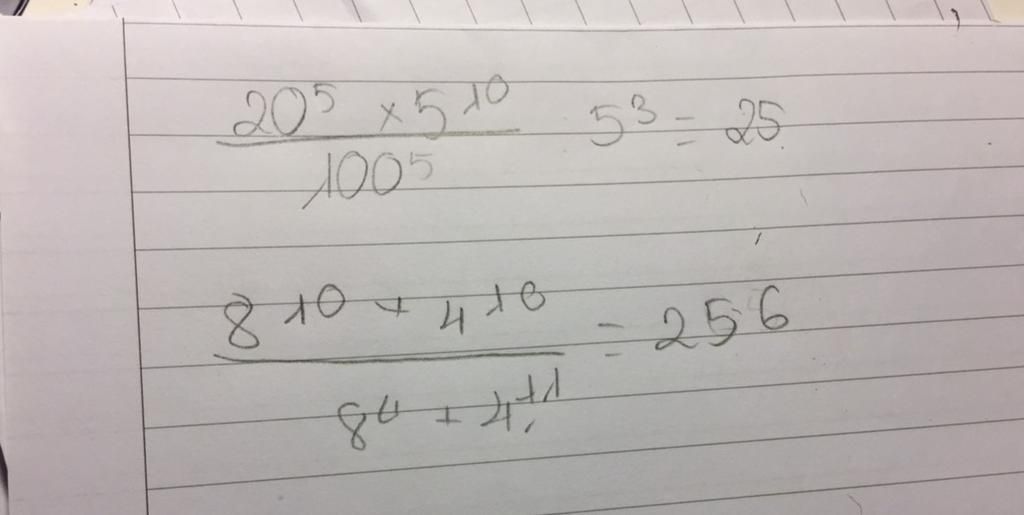 20⁵ × 5¹⁰ / 100⁵ 5³ = 25
8¹⁰ + 4¹⁰ / 8⁴ + 4¹¹ = 256